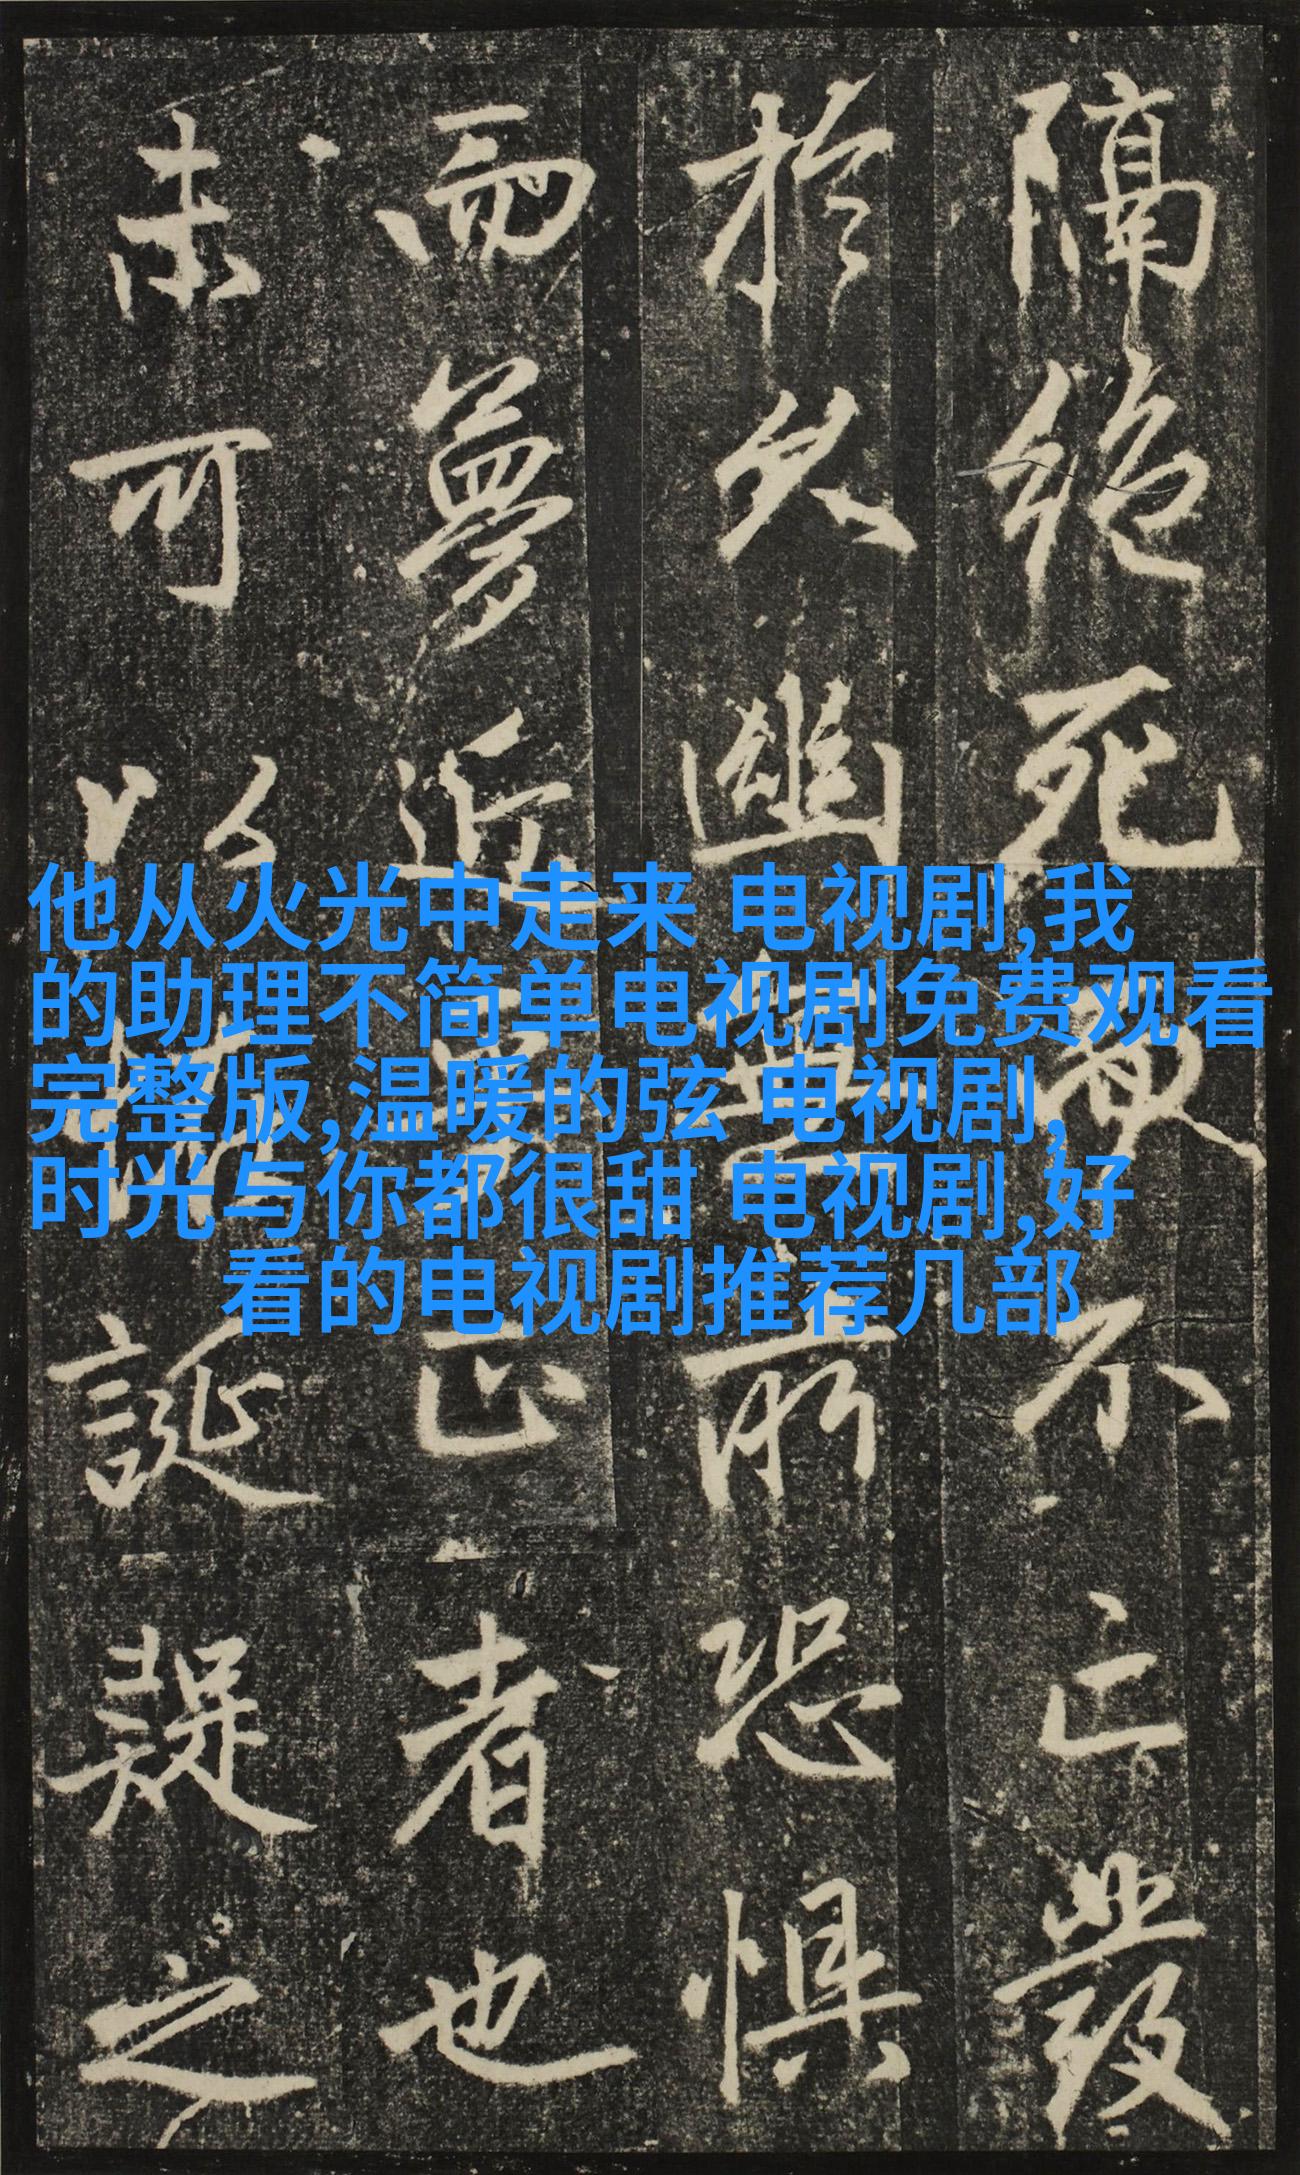 他从火光中走来 电视剧,我
的助理不简单电视剧免费观看
完整版,温暖的弦 电视剧,
时光与你都很甜 电视剧,好
看的电视剧推荐几部
隔絕死不亡發
於久幽無所恐懼
而夢近正者也
未可以誕疑之